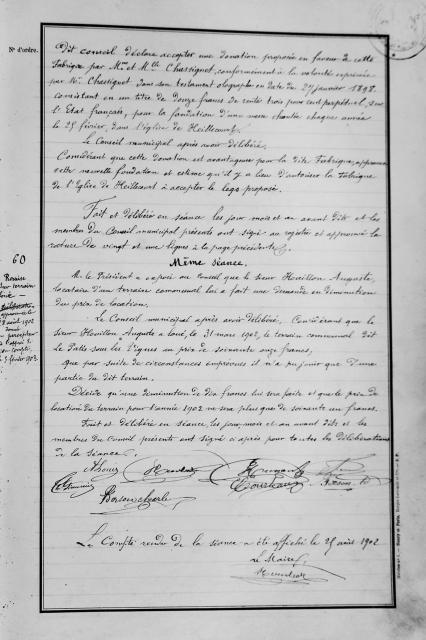 N° d'ordre.
Dit conseil déclare accepter une donation proposée en faveur de cette
Fabrique par Mme et Mlle Chassignet, conformément à la volonté exprimée
par Mr. Chassignet dans son testament olographe en date du 27 janvier 1898.
consistant en un titre de douze francs de rente trois pour cent perpétuel, sur
l'Etat français, pour la fondation d'une messe chantée chaque année
le 25 février, dans l'église de Heillecourt.
Le Conseil municipal après avoir délibéré.
Considérant que cette donation est avantageuse pour la dite Fabrique, approuve
cette nouvelle fondation et estime qu'il y a lieu d'autoriser la Fabrique
de l'Eglise de Heillecourt à accepter le legs proposé.
Fait et délibéré en séance les jour mois et an avant dits et les
membres du Conseil municipal présents ont signé au registre et approuvé la
rature de vingt et une lignes à la page précédente.
Même séance.
60
Remise
sur terrain
M. le Président a exposé au Conseil que le sieur Houillon Auguste,
locataire d'un terrain communal lui a fait une demande en diminution
du prix de location.
Le Conseil municipal après avoir délibéré. Considérant que le
sieur Houillon Auguste a loué, le 31 mars 1902, le terrain communal dit
le Patis sous les Vignes au prix de soixante onze francs,
que par suite de circonstances imprévues il n'a pu jouir que d'une
partie du dit terrain.
Décide qu'une diminution de dix francs lui sera faite et que le prix de
location du terrain pour l'année 1902 ne sera plus que de soixante un francs.
Fait et délibéré en séance, les jour, mois et an avant dits et les
membres du Conseil présents ont signé ci après pour toutes les délibérations
de la séance.
Le Compte rendu de la séance a été affiché le 25 août 1902
le Maire